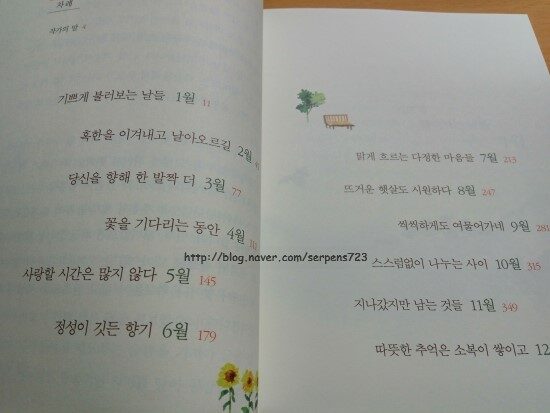 차례
작가의 말 4
기쁘게 불러보는 날들 1월 11
혹한을 이겨내고 날아오르길 2월
당신을 향해 한 발짝 더 3월 77
꽃을 기다리는 동안 4월
사랑할 시간은 많지 않다 5월 145
정성이 깃든 향기 6월 179
맑게 흐르는 다정한 마음들 7월 213
뜨거운 햇살도 시원하다 8월 247
씩씩하게도 여물어가네 9월 281
스스럼없이 나누는 사이 10월 315
지나갔지만 남는 것들 11월 349
따뜻한 추억은 소복이 쌓이고 12
http://blog.naver.com/serpens723